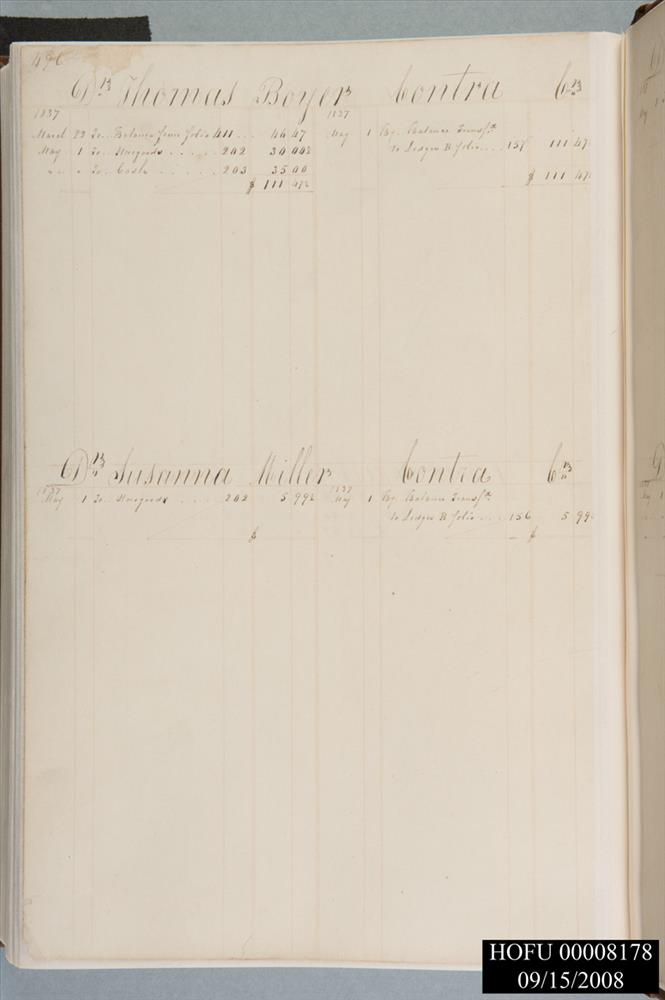 Dr Thomas Boyer Contra Cr
1837 1837
March 23 To Balance from folio 411 46 47 May 1 By Balance Transf.d
May 1 To Stregoods 202 30 00½ to Ledger B folio 157 111 47
" " " To Cash 203 35 00 $ 111 47
$ 111 47½
Dr Susanna Miller Contra Cr
1837 1837
May 1 To Stregoods 202 5 99½ May 1 By Balance Transf.d
to Ledger B folio 156 5 99
$ $
HOFU 00008178
09/15/2008